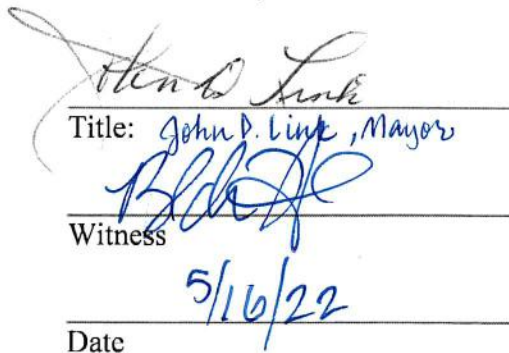 John D Link
Title: John D. Link, Mayor
Witness
5/16/22
Date